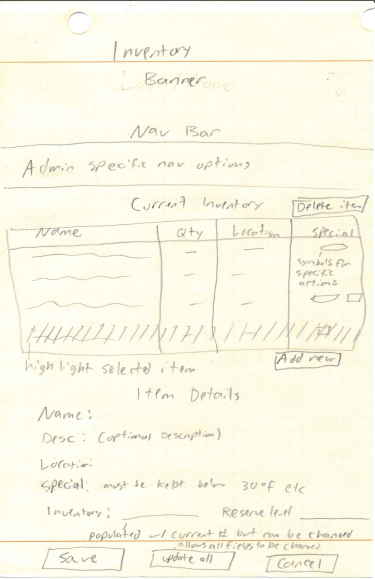 Inventory
Banner
Nav Bar
Admin specific nav options
Current Inventory
Delete item
Name Qty Location special
symbols for
specific
actions
Add new
highlight selected item
Item Details
Name:
Desc: (optional description)
Location:
special: must be kept below 30°F etc
Inventory: Reserve level
populated w/ current # but can be changed
allows all fields to be changed
Save update all Cancel